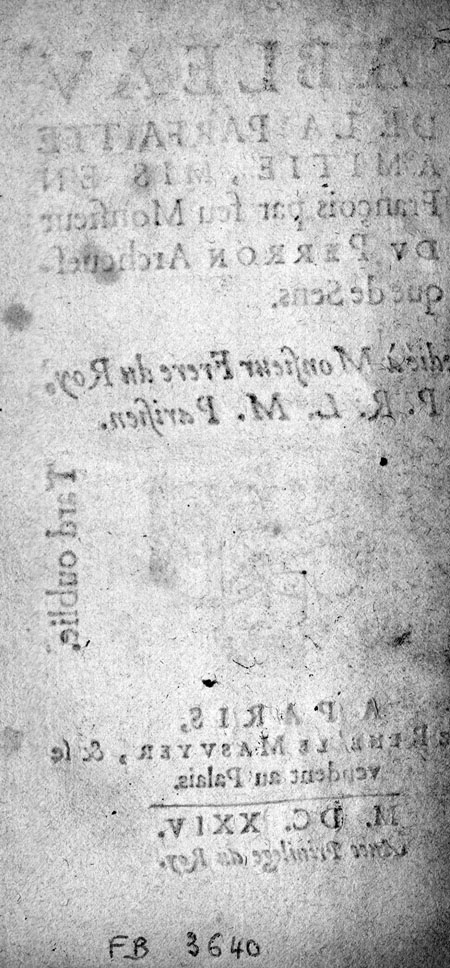 TABLEAV
DE LA PARFAITTE
AMITIE, MIS EN
François par feu Monsieur
DV PERRON Archeues-
que de Sens.
dié à Monsieur Frere du Roy,
P. R. L. M. Parisien.
Tard oublie,
A PARIS,
RENE' LE MASVYER, & se
vendent au Palais.
M. DC. XXIV.
Auec Priuilege du Roy.
FB 3640